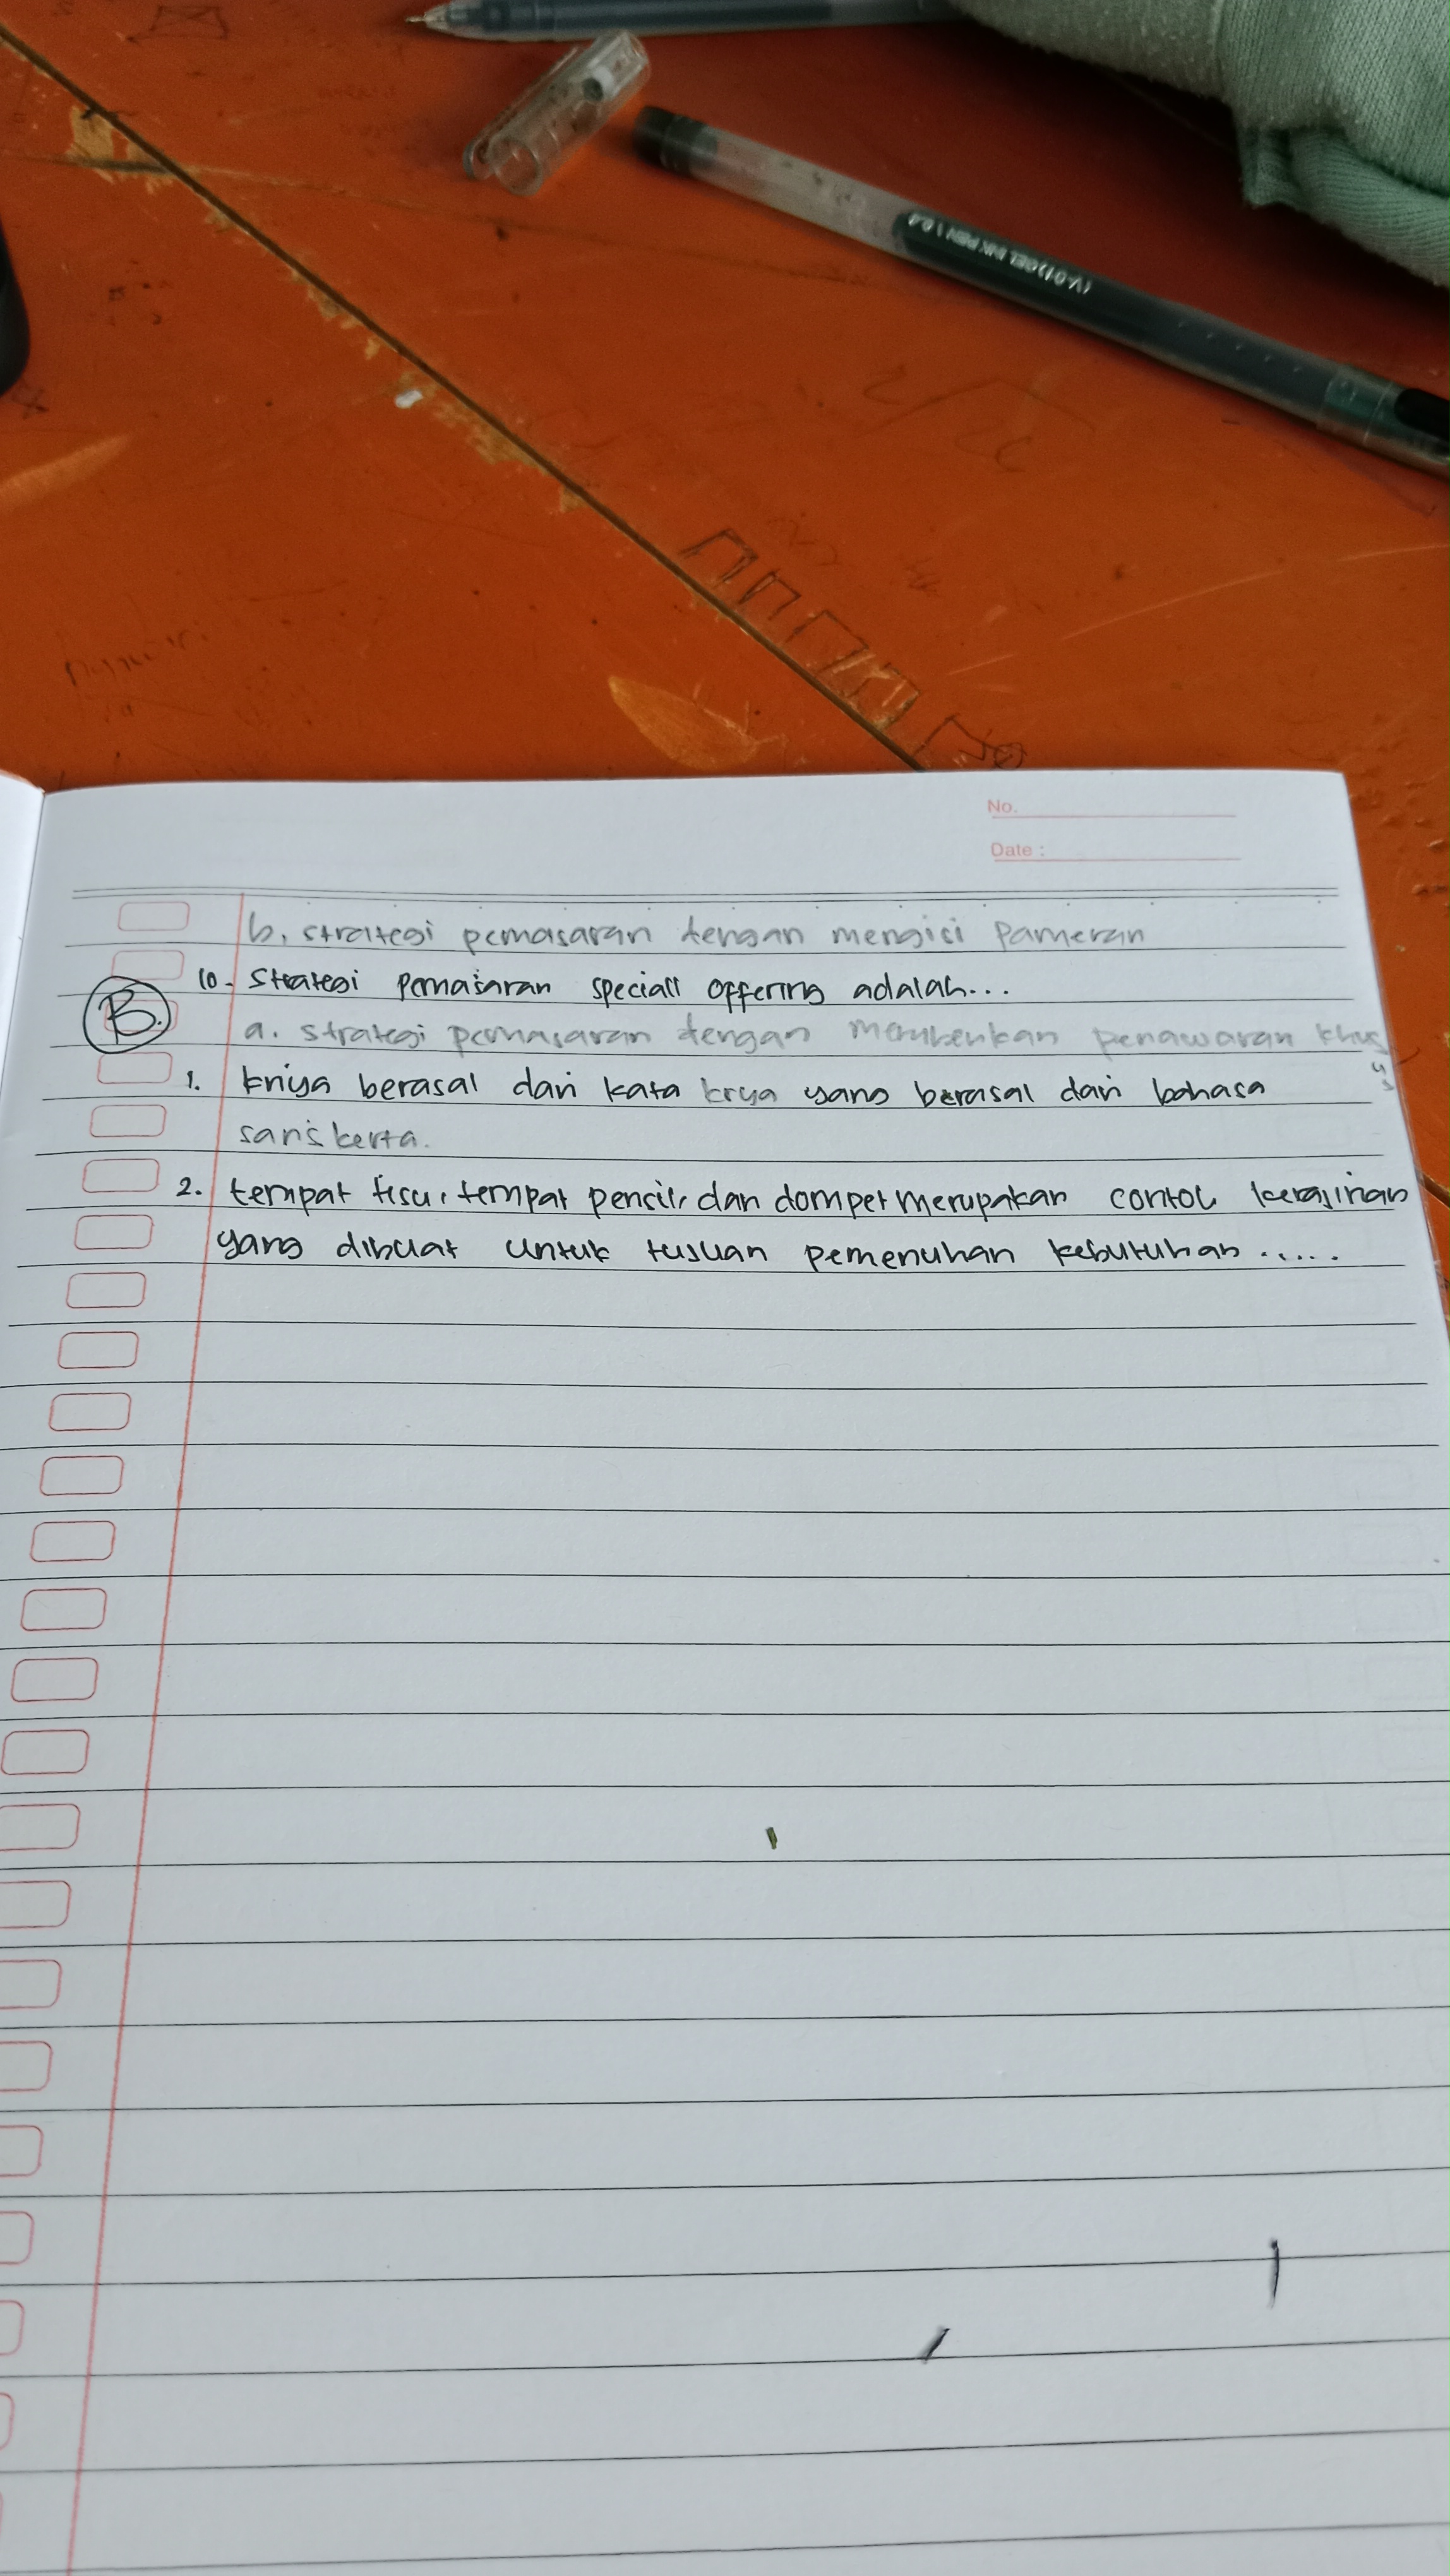 (V-01) GEL INK PEN 1 0.4
No.
Date :
b. strategi pemasaran dengan mengisi Pameran
10. Strategi pemasaran speciall offering adalah...
B.
a. strategi pemasaran dengan memberikan penawaran khusus
1. kriya berasal dari kata krya yang berasal dari bahasa
sanskerta.
2. tempat tisu, tempat pencil, dan dompet merupakan contoh kerajinan
yang dibuat untuk tujuan pemenuhan kebutuhan .....